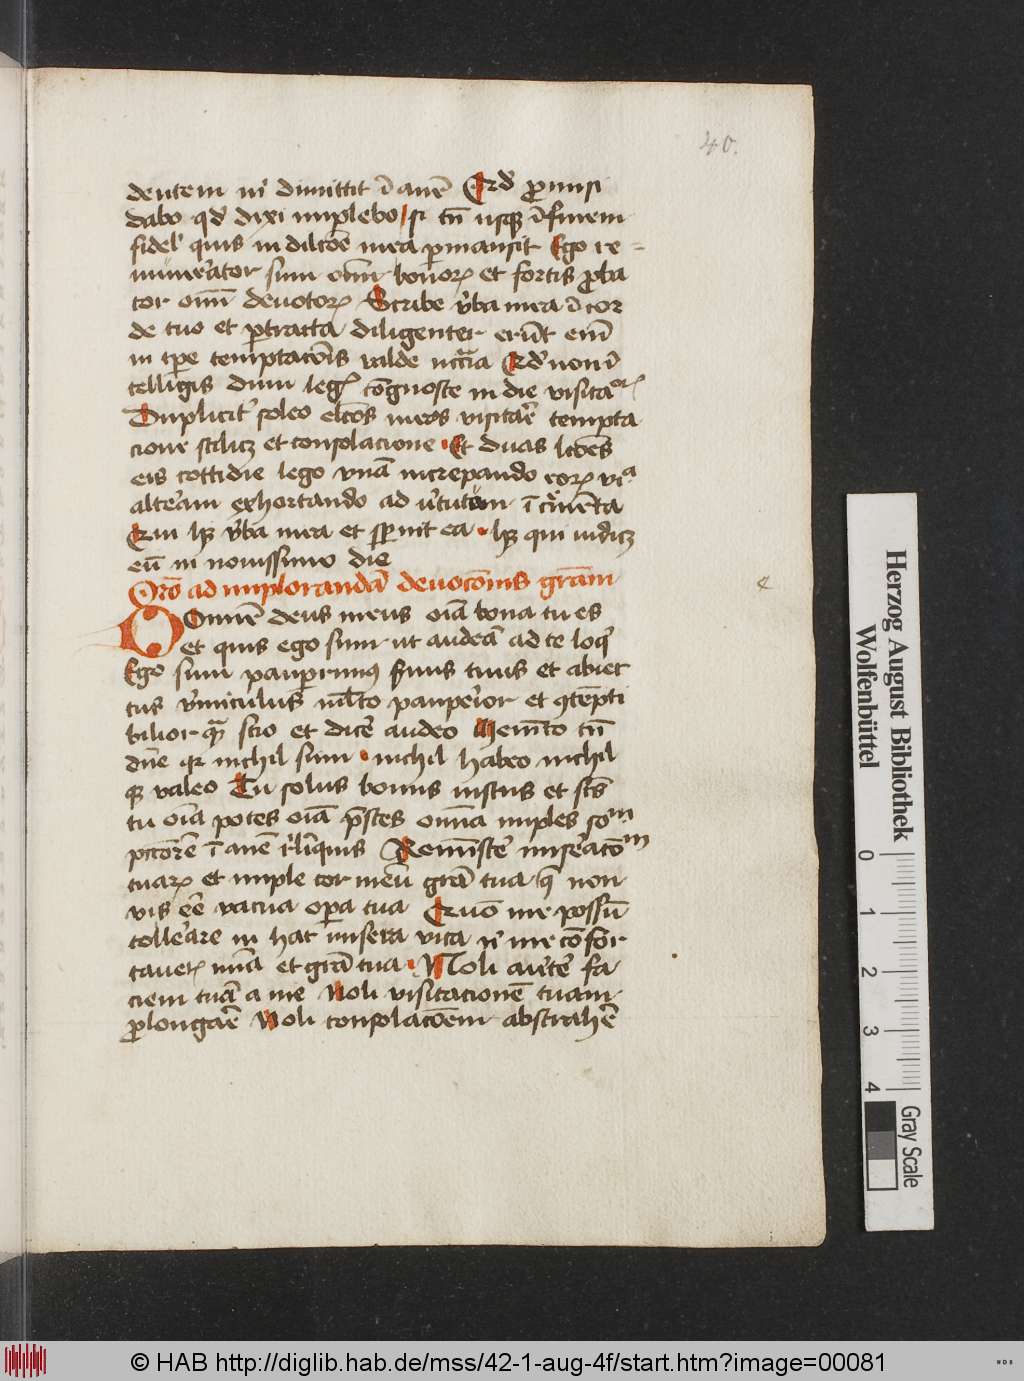 40.
dentem nō dimittit ī anē Qd' promisi
dabo qd' dixi implebo si tn̄ usq ī finem
fidel' quis in dilcōe mea permansit Ego re=
munerator sum om̄ bonoꝝ et fortis proba
tor om̄ devotoꝝ Scribe v̓ba mea ī cor
de tuo et pertracta diligenter erūt em̄
in tp̄e temptacōis valde nccāria Qd' non ī
telligis dum legꝭ cōgnosce in die visitac
Duplicit' soleo elcōs meos visitar̄e tempta
cione scilicꝫ et consolacione Et duas lcōes
eis cottidie lego vnā increpando eoꝝ via
alteram exhortando ad v̓tutum īcremēta
Qui hꝫ v̓ba mea et spernit ea hꝫ qui iudicꝫ
eū in novissimo die
Orō ad implorandā devocōnis grām
Domīe deus meus oīa bona tu es
et quis ego sum ut audeā ad te loq'
Ego sum pauperrimus suus tuus et abiec
tus v̓miculus mlto pauperior et ꝯtēpti
bilior qm scio et dicē audeo Memēto tn̄
dn̄e qr nichil sum nichil habeo nichil
qꝫ valeo Tu solus bonus iustus et scs
tu oīa potes oīa prestes omnia imples so
pctōrē ī anē relīquis Reminiscē miseracō
tuaꝝ et imple cor meū grā tua q' non
vis ēe vacua opera tua Quō me possū
tollerare in hac misera vita n' me cōfor
taverꝭ mīa et grā tua Noli av̓tē fa
ciem tuā a me Noli visitacionē tuam
prolongarē Noli consolacōem abstrahē
c
Herzog August Bibliothek
Wolfenbüttel
0
1
2
3
4
Gray Scale
© HAB http://diglib.hab.de/mss/42-1-aug-4f/start.htm?image=00081